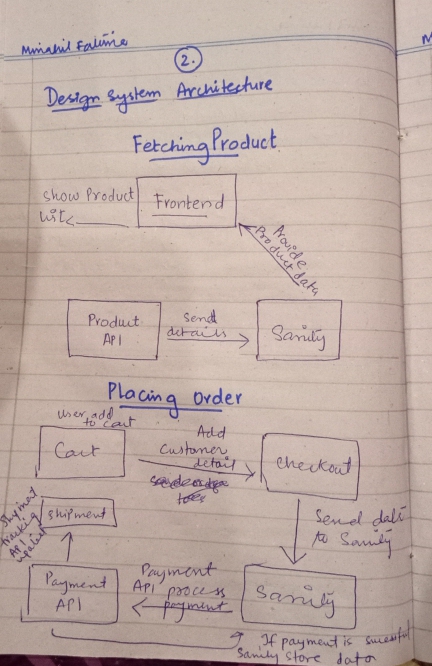 Minahil Fatima
2.
Design System Architecture
Fetching Product
show Product
Frontend
Provide
Product data
Product
API
Send
details
Sanity
Placing order
user add
to cart
Cart
Add
Custamer
detail
checkout
shipment
Shipment
tracking
API
Send data
to Sanity
Payment
API
Payment
API process
payment
Sanity
If payment is sucessful
Sanity store data